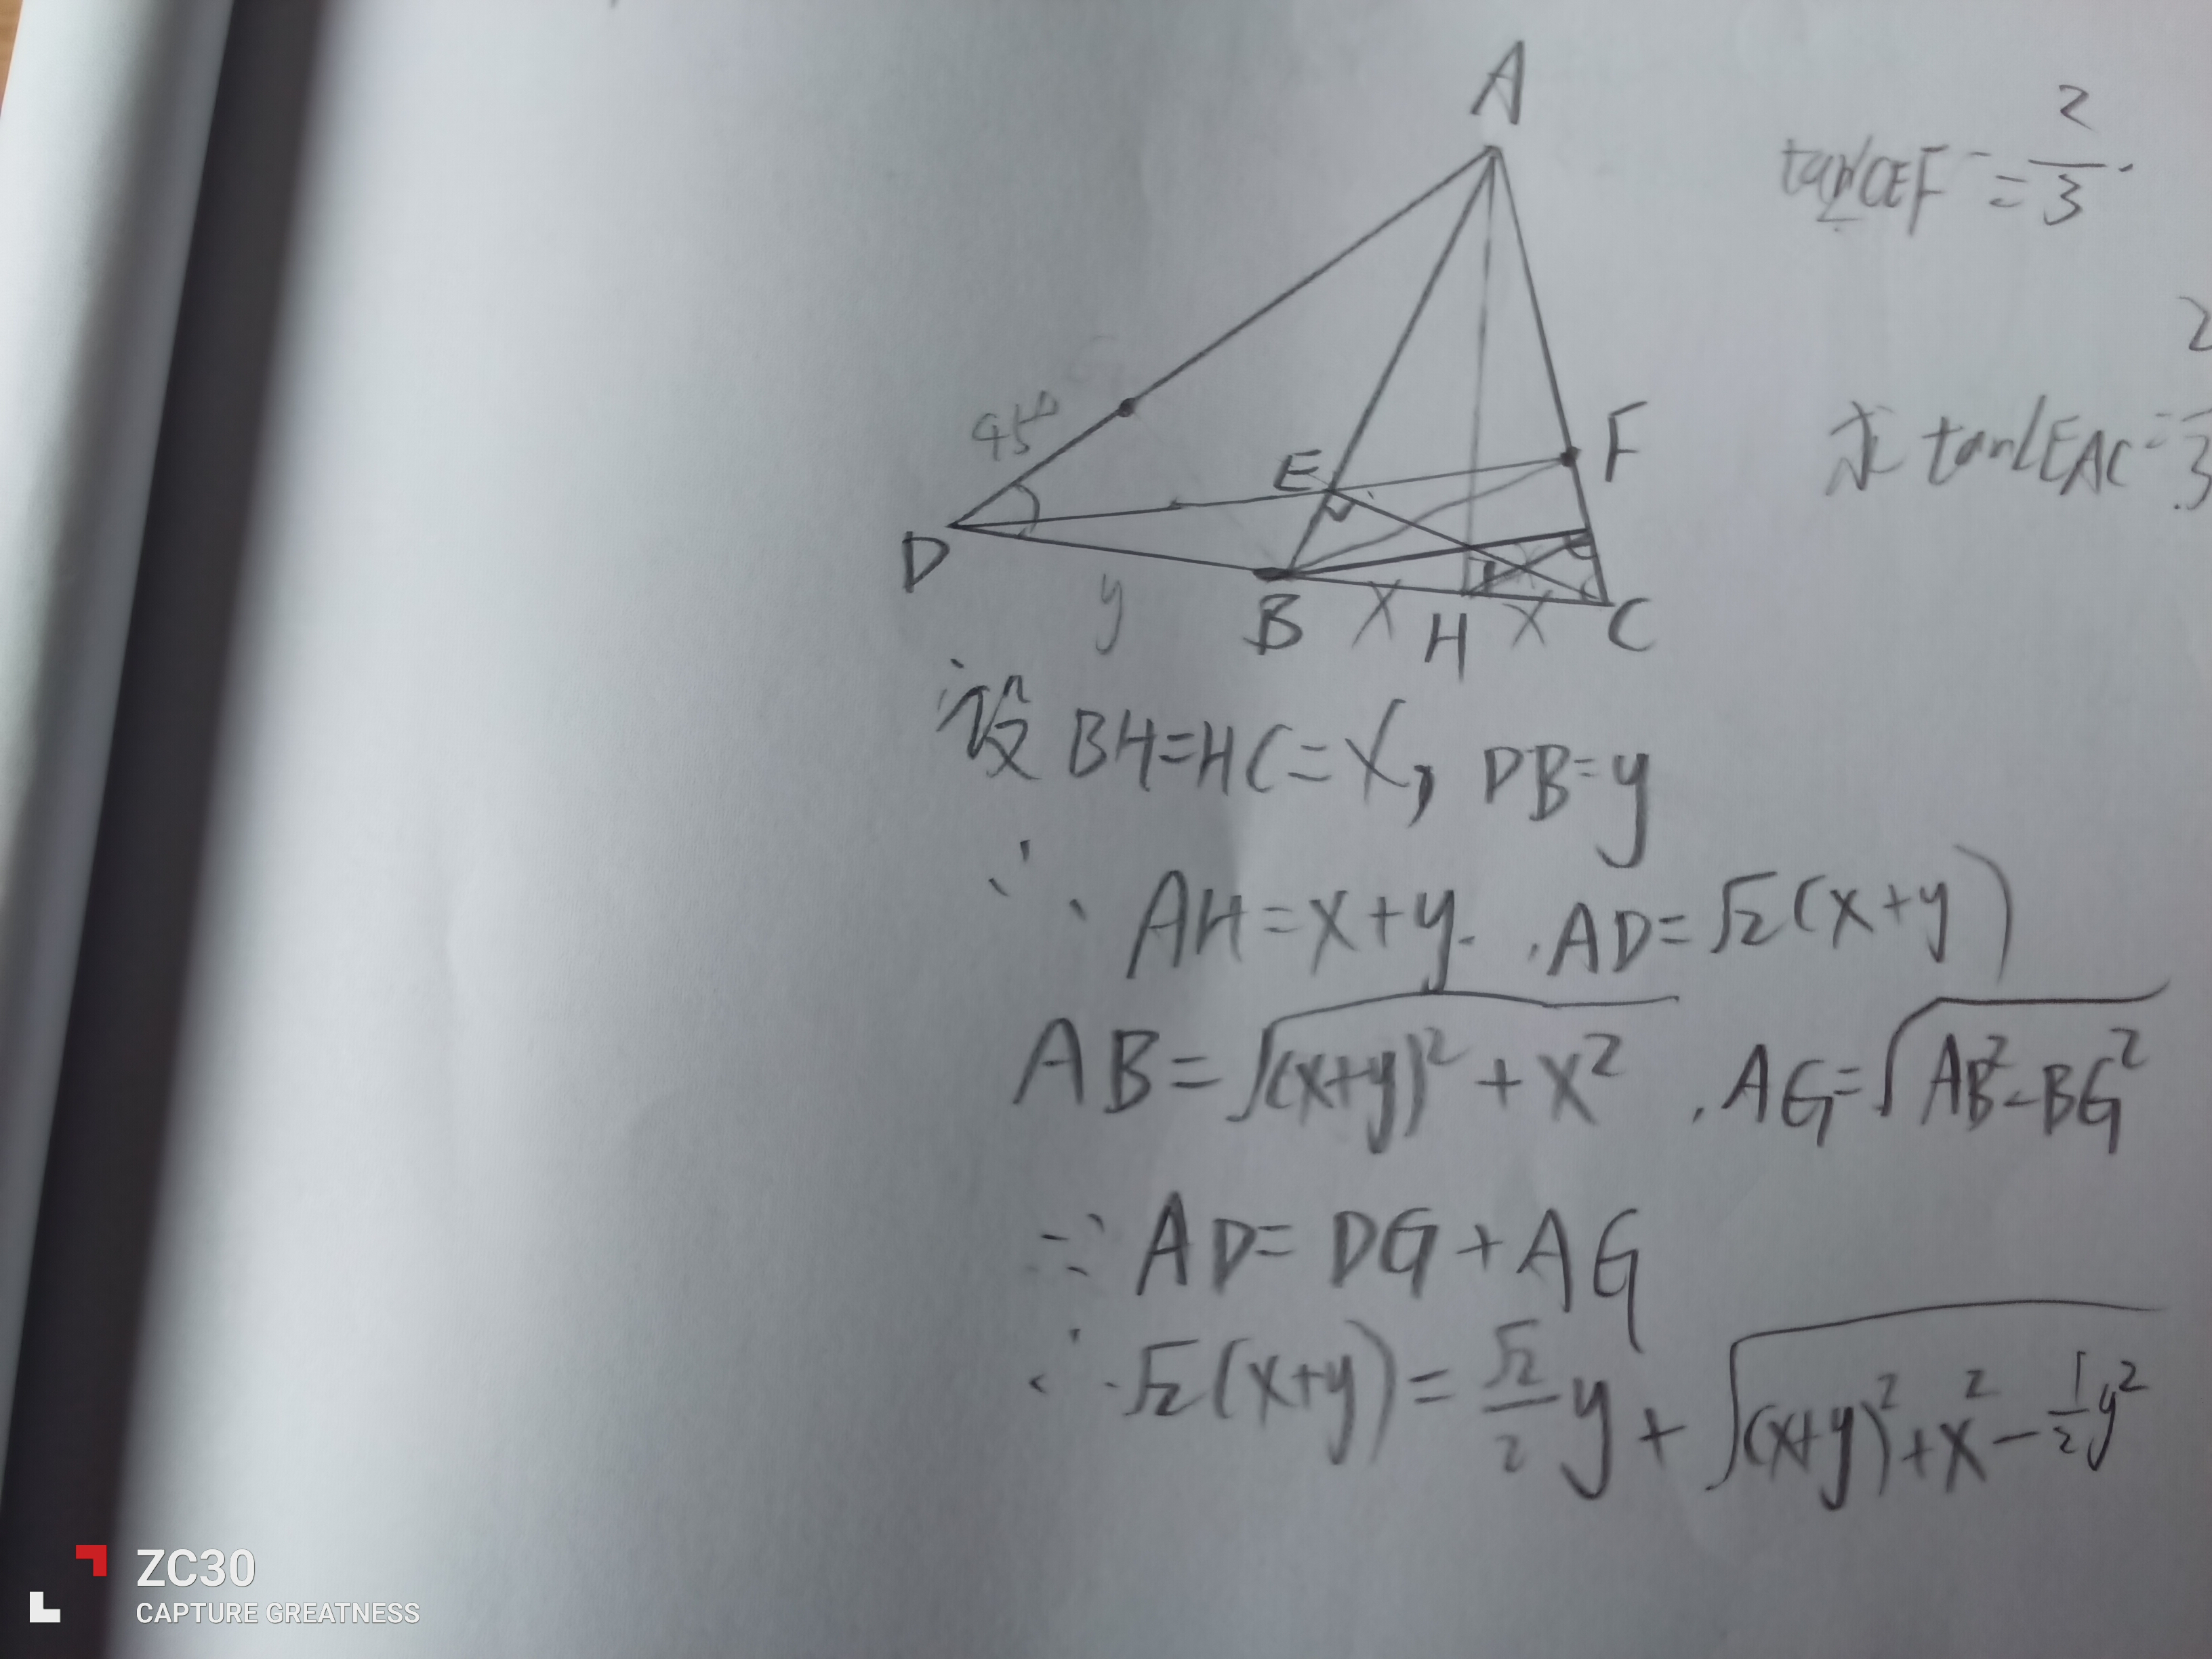 A
tan∠CEF = 2/3.
求 tan∠EAC = 2/3
45°
E
F
D
y
B
x
H
x
C
设 BH=HC=x, DB=y
∴ AH=x+y. .AD=√2(x+y)
AB=√((x+y)²+x²) , AG=√(AB²-BG²)
∵ AD=DG+AG
∴ √2(x+y)=√2/2 y+√((x+y)²+x²-1/2y²)
ZC30
CAPTURE GREATNESS